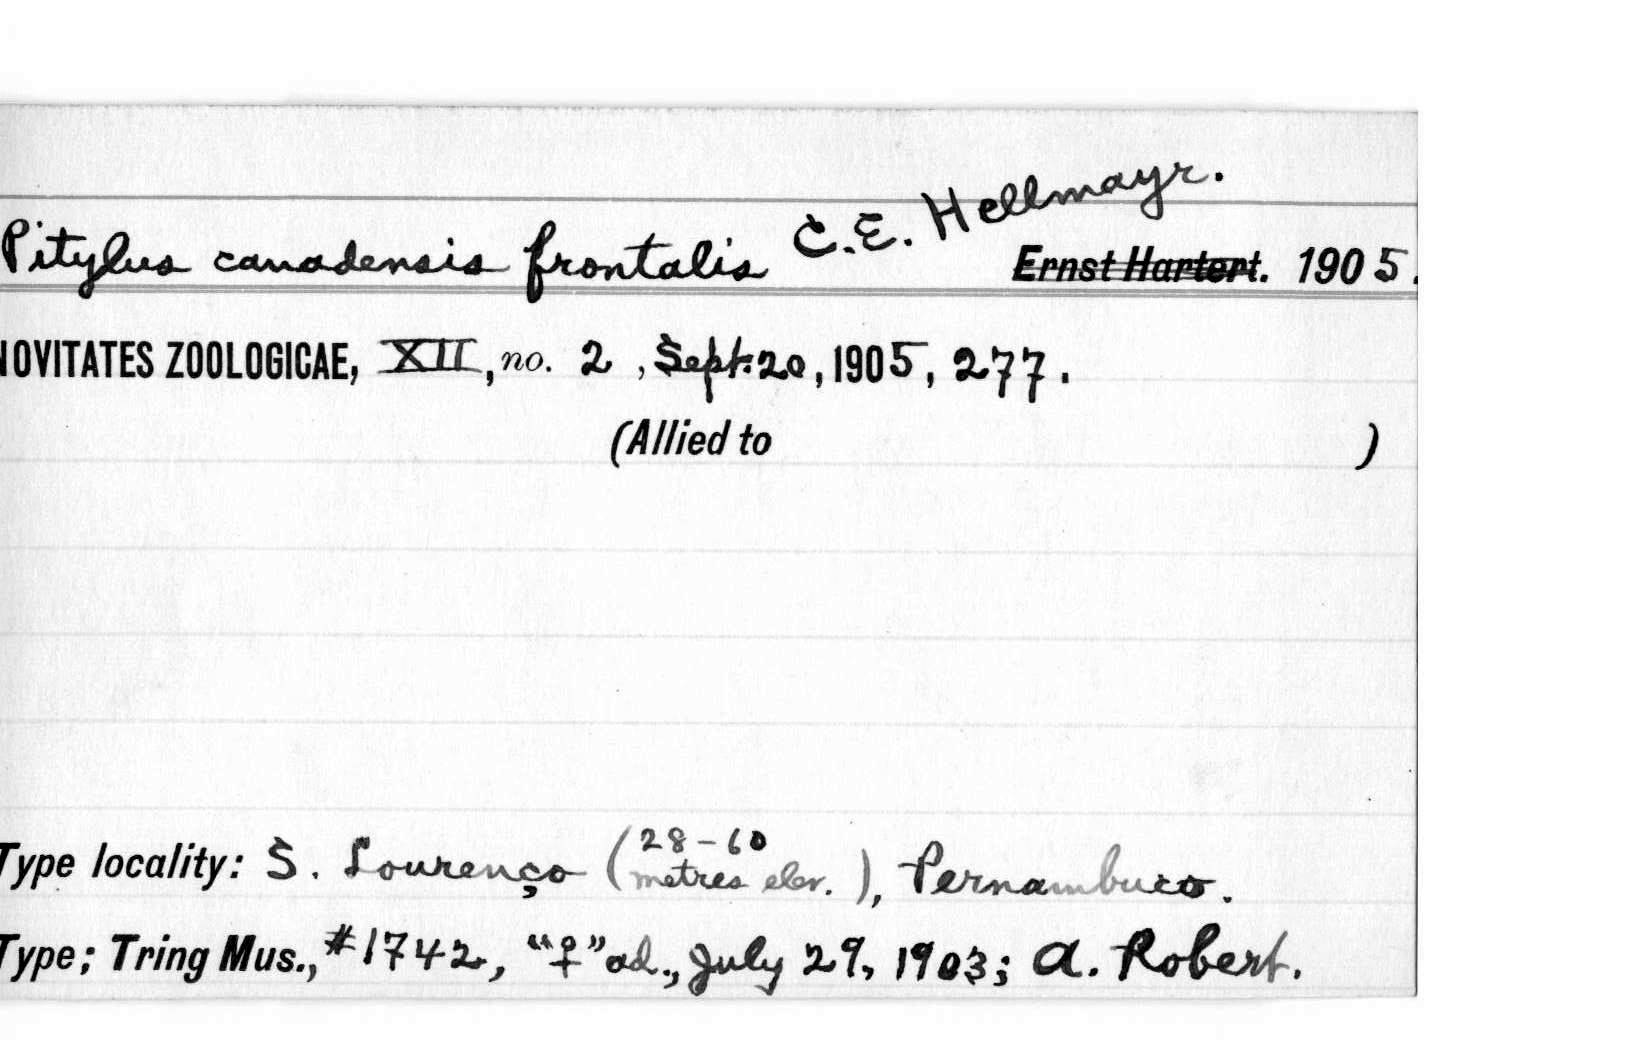 Pitylus canadensis frontalis C.E. Hellmayr.
Ernst Hartert. 1905.
NOVITATES ZOOLOGICAE, XII, no. 2, Sept. 20, 1905, 277.
(Allied to )
Type locality: S. Lourenço (28-60 metres elev.), Pernambuco.
Type; Tring Mus., #1742, "♀" ad., July 29, 1903; A. Robert.